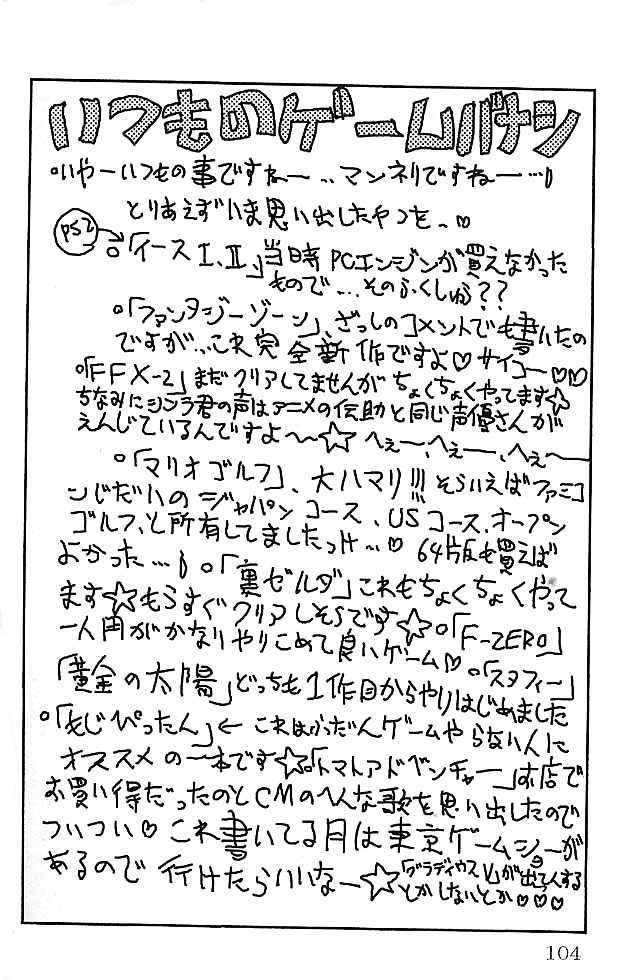 いつものゲームバナシ
○いやーいつもの事ですねー…マンネリですねー…!
とりあえずいま思い出したやつを…♡
PS2
○「イースⅠ、Ⅱ」当時PCエンジンが買えなかった
もので…そのふくしゅう??
○「ファンタジーゾーン」、ざっしのコメントでも書いたの
ですが…これ完全新作ですよ♡サイコー♡♡
○「FFX-2」まだクリアしてませんがちょくちょくやってます☆
ちなみにシンラ君の声はアニメの伝助と同じ声優さんが
えんじているんですよ〜☆へぇー、へぇー、へぇ〜
○「マリオゴルフ」、大ハマリ!!!そういえばファミコ
ンじだいのジャパンコース、USコース、オープン
ゴルフ、と所有してましたっけ…♡64版も買えば
よかった…! ○「裏ゼルダ」これもちょくちょくやって
ます☆もうすぐクリアしそうです☆○「F-ZERO」
一人用がかなりやりこめて良いゲーム♡○「スタフィー」
「黄金の太陽」どっちも1作目からやりはじめました
○「もじぴったん」←これはふだんゲームやらない人に
オススメの一本です☆○「トマトアドベンチャー」お店で
お買い得だったのとCMのへんな歌を思い出したので
ついつい♡これ書いてる月は東京ゲームショーが
あるので行けたらいいなー☆「グラディウスⅤ」が出てんする
とかしないとか♡♡♡
104